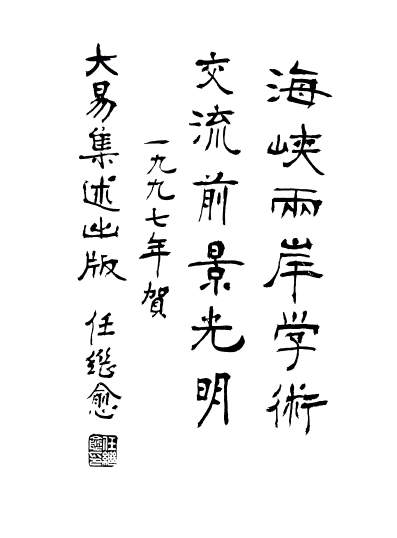 海峡兩岸学術
交流前景光明
一九九七年賀
大易集述出版
任继愈
任继愈印